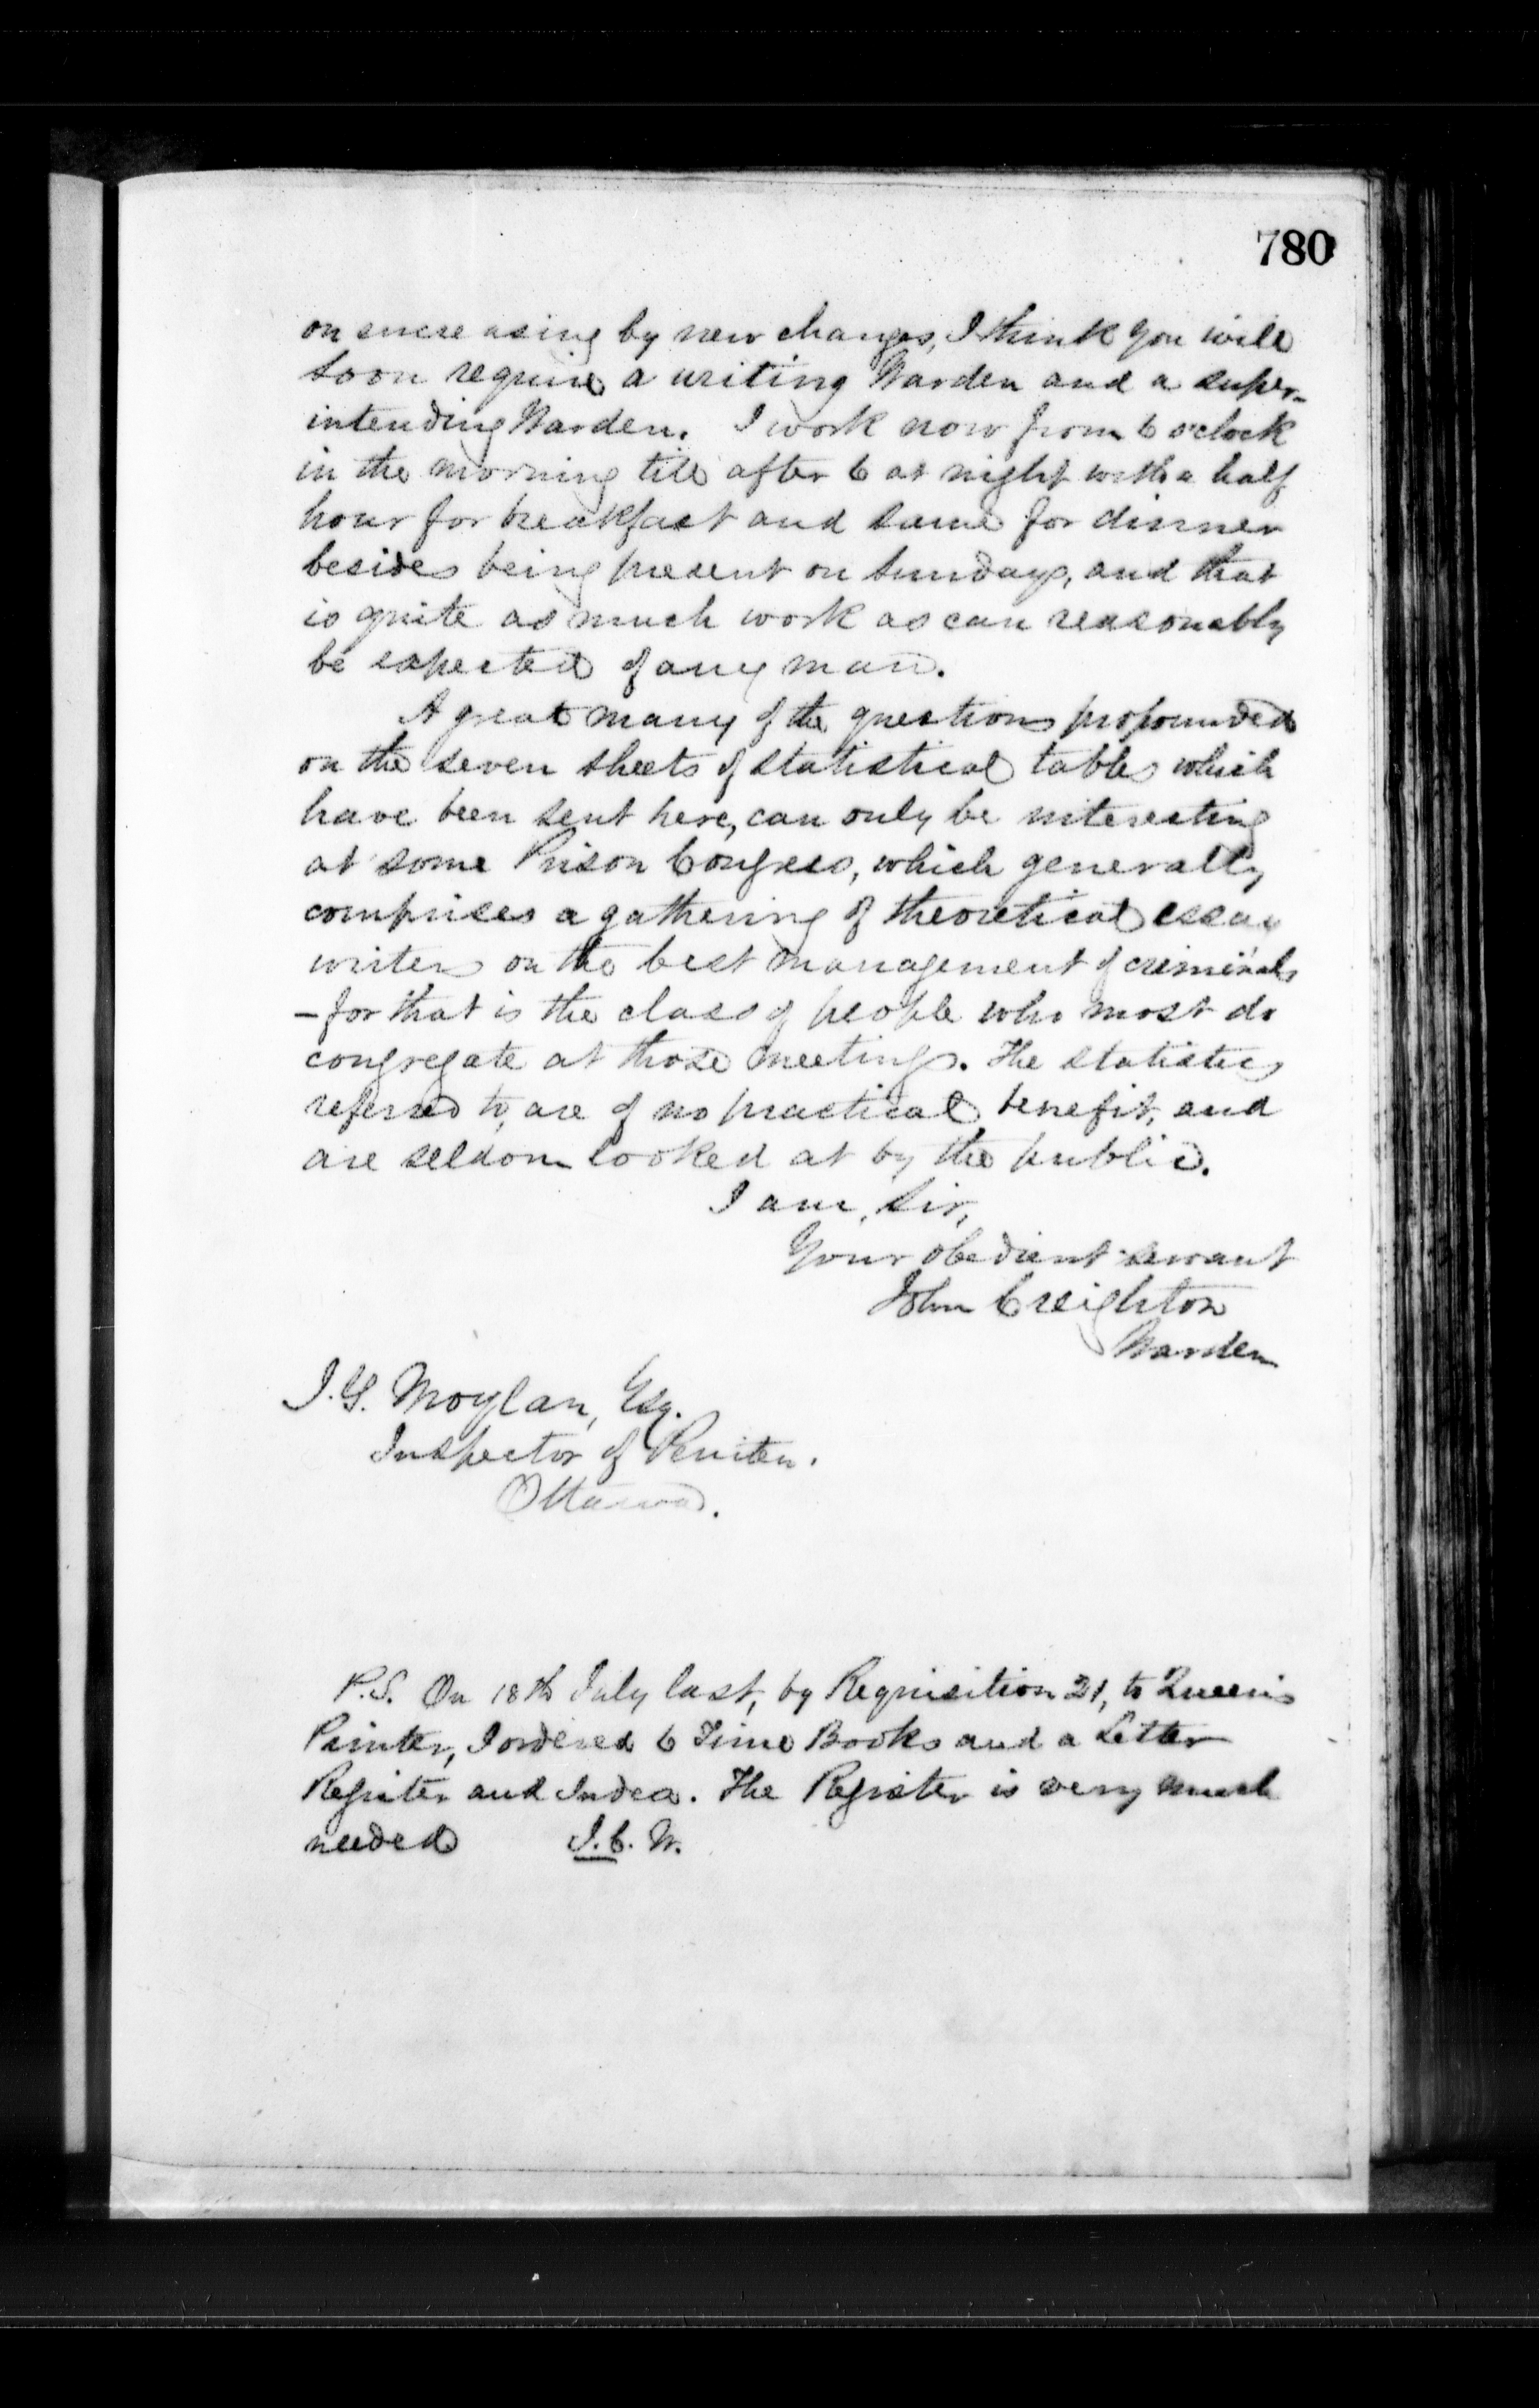 780
on increasing by new changes, I think you will
soon require a writing Warden and a super-
intending Warden. I work now from 6 o'clock
in the morning till after 6 at night with a half
hour for breakfast and same for dinner
besides being present on Sundays, and that
is quite as much work as can reasonably
be expected of any man.
A great many of the questions propounded
on the seven sheets of statistical tables which
have been sent here, can only be interesting
at some Prison Congress, which generally
comprises a gathering of theoretical essay
writers on the best management of criminals
- for that is the class of people who most do
congregate at those meetings. The statistics
referred to, are of no practical benefit, and
are seldom looked at by the public.
I am, Sir,
Your obedient servant
John Creighton
Warden
J.G. Moylan, Esq.
Inspector of Peniten.
Ottawa.
P.S. On 18th July last, by Requisition 21, to Queen's
Printer, I ordered 6 Time Books and a Letter
Register and Index. The Register is very much
needed J.C. W.